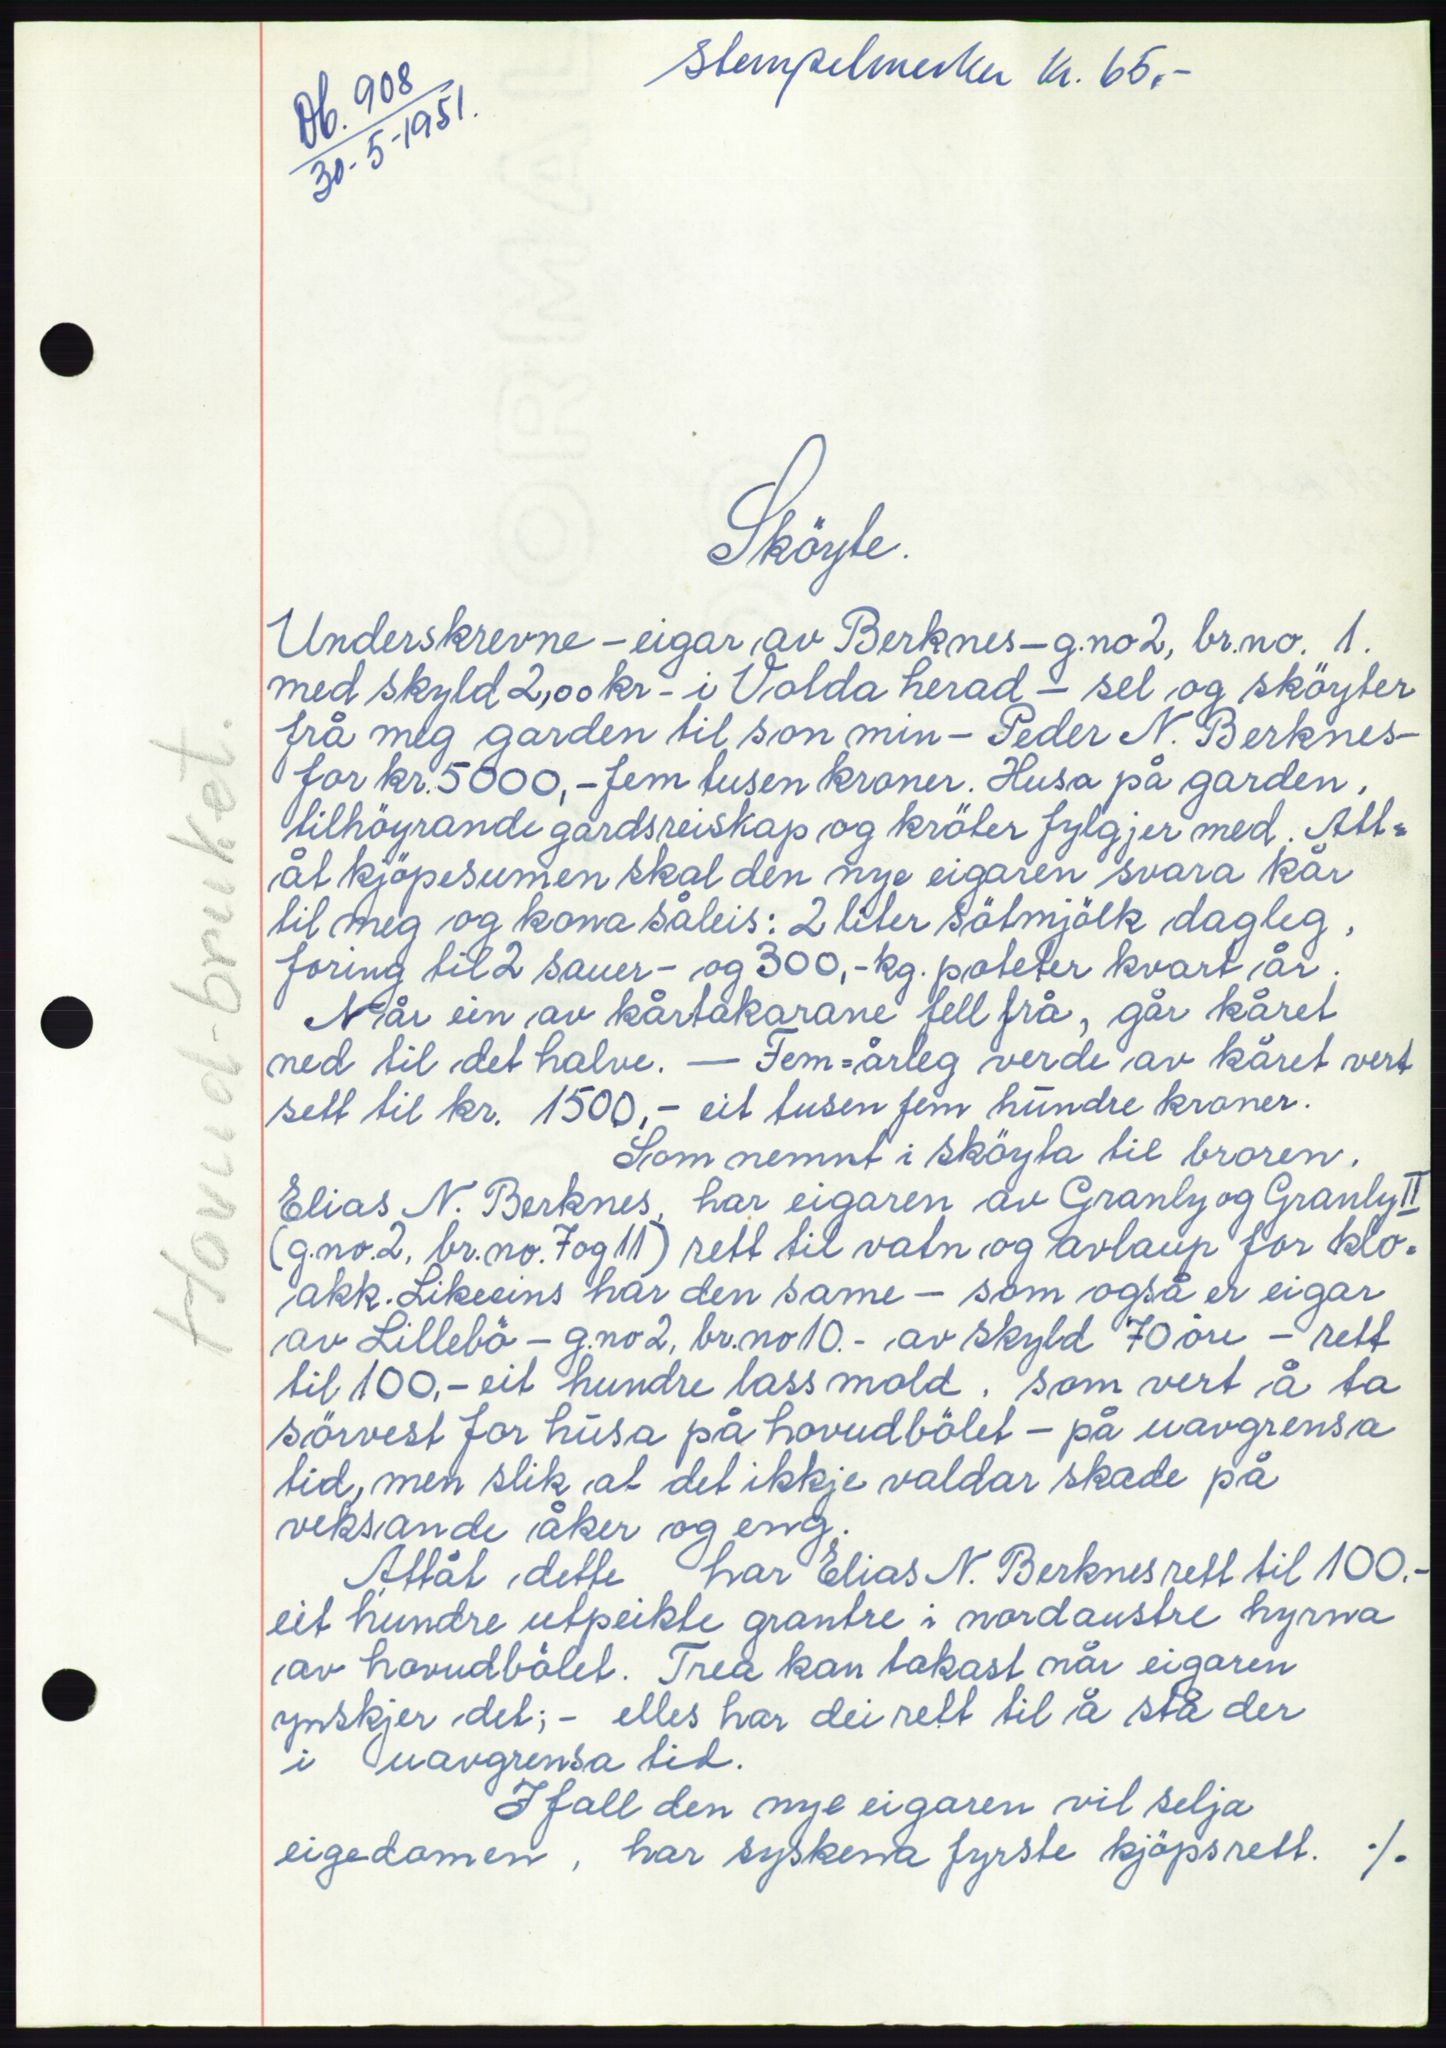 Stempelmerker kr. 65,-
Db. 908
30-5-1951.
Sköyte.
Underskrevne - eigar av Berknes - g.no 2, br.no. 1.
med skyld 2,00 kr - i Volda herad - sel og sköyter
frå meg garden til son min - Peder N. Berknes -
for kr. 5000,- fem tusen kroner. Husa på garden,
tilhöyrande gardsreiskap og kröter fylgjer med. Att=
åt kjöpesumen skal den nye eigaren svara kår
til meg og kona såleis: 2 liter sötmjölk dagleg,
foring til 2 sauer - og 300,- kg. poteter kvart år.
Når ein av kårtakarane fell frå, går kåret
ned til det halve. — Fem=årleg verde av kåret vert
sett til kr. 1500,- eit tusen fem hundre kroner.
Som nemnt i sköyta til broren,
Elias N. Berknes, har eigaren av Granly og Granly II
(g.no.2, br.no. 7 og 11) rett til vatn og avlaup for klo=
akk. Likeeins har den same - som også er eigar
av Lillebö - g.no 2, br.no 10. - av skyld 70 öre - rett
til 100,- eit hundre lass mold, som vert å ta
sörvest for husa på hovudbölet - på uavgrensa
tid, men slik at det ikkje valdar skade på
veksande åker og eng.
Attåt dette har Elias N. Berknes rett til 100.-
eit hundre utpeikte grantre i nordaustre hyrna
av hovudbölet. Trea kan takast når eigaren
ynskjer det; - elles har dei rett til å stå der
i uavgrensa tid.
Ifall den nye eigaren vil selja
eigedomen, har syskena fyrste kjöpsrett. ./.
Hovud-bruket.